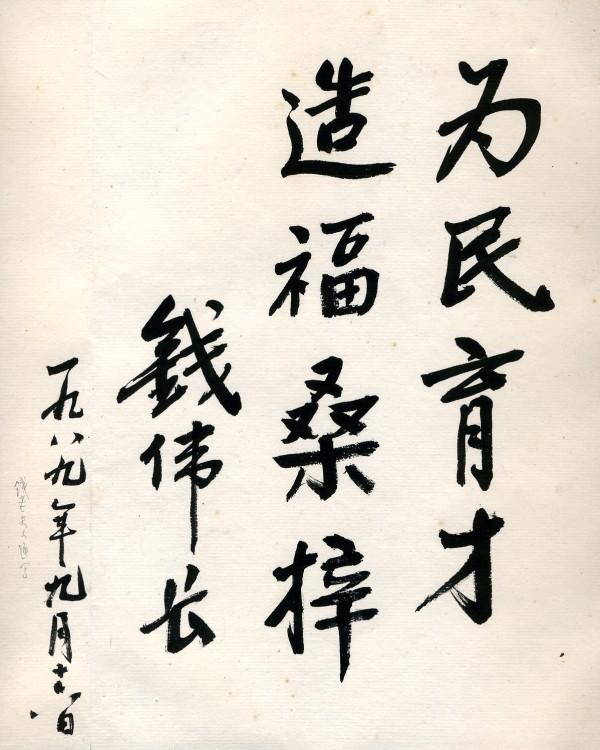 为民育才
造福桑梓
錢伟长
一九八九年九月十日